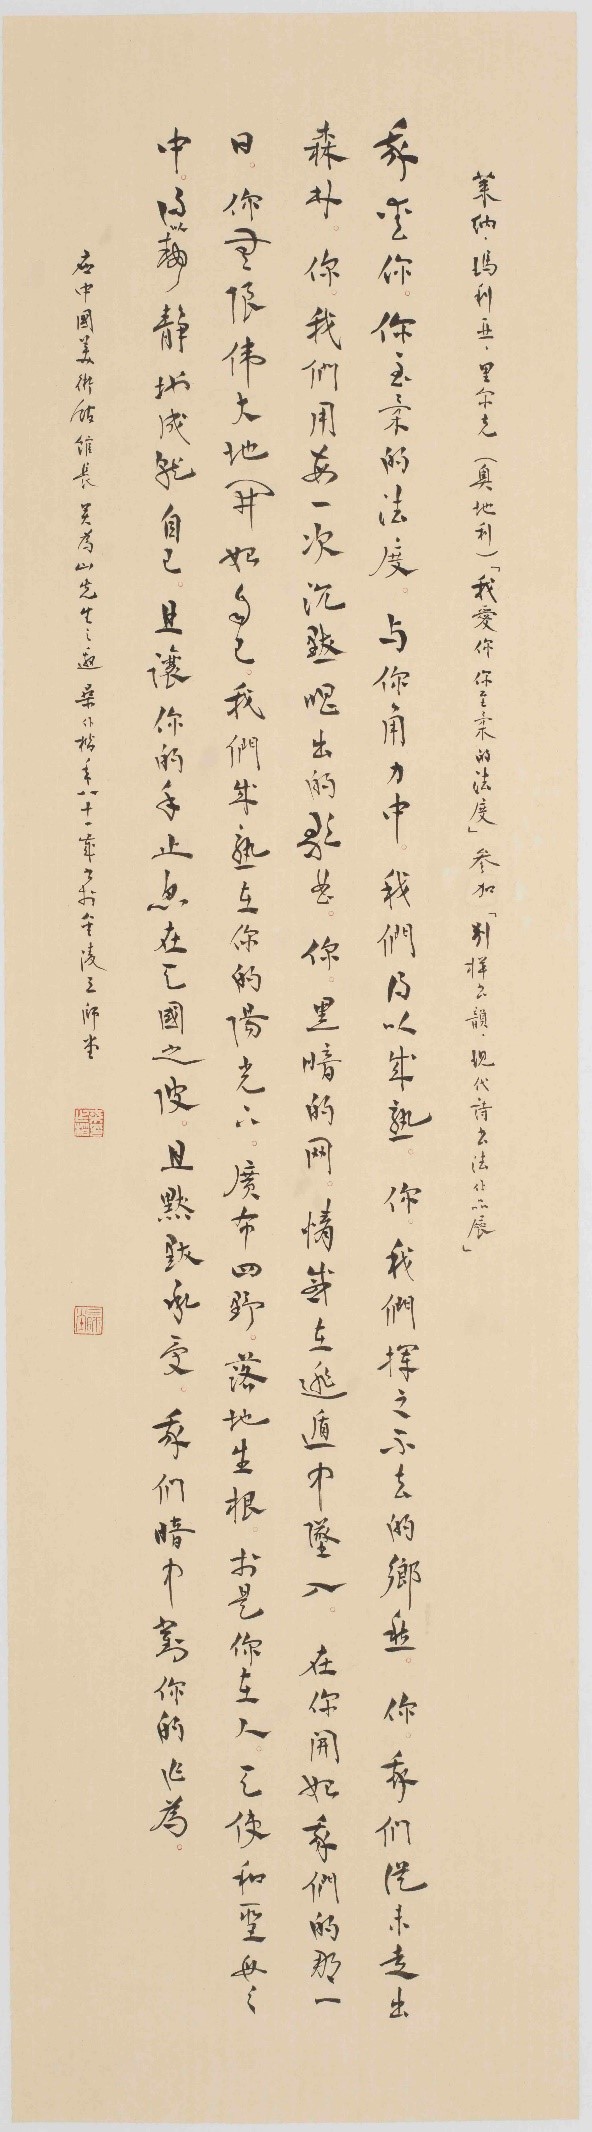 莱纳·瑪利亚·里尔克(奥地利)「我愛你 你至柔的法度」参加「别样书韻·現代詩书法作品展」
我愛你。你至柔的法度。与你角力中。我們得以成熟。你。我們揮之不去的鄉愁。你。我們從未走出
森林。你。我們用每一次沉默唱出的歌。你。黑暗的网。情感在逃遁中墜入。 在你開始我們的那一
日。你無限伟大地開始自己。我們成熟在你的陽光下。廣布四野。落地生根。於是你在人。天使和聖母之
中。得以静静地成就自己。且讓你的手止息在天國之陂。且默默承受。我们暗中對你的作為。
应中國美術館館長吴為山先生之邀 桑作楷年八十一歲书於金陵三師堂